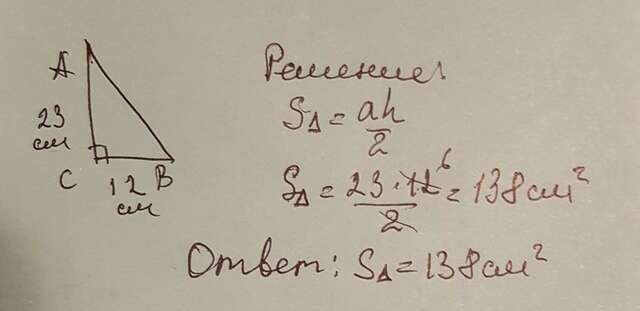 A
23
см
C
12
см
B
Решение:
S△ = ah/2
S△ = 23 · 12⁶/2 = 138 см²
Ответ: S△ = 138 см²